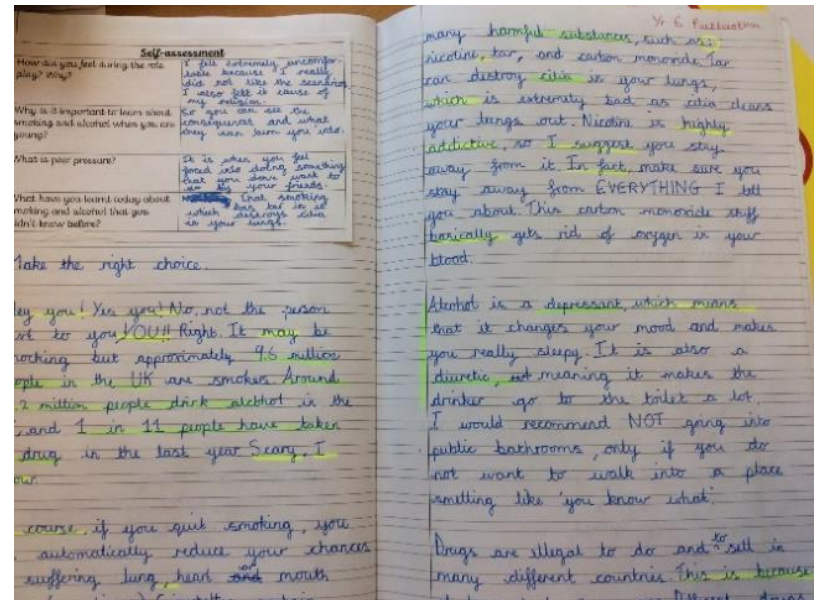 Self-assessment
How did you feel during the role
play? Why?
I felt extremely uncomfor-
table because I really
did not like the scenario.
I also felt it cause of
my religion.
Why is it important to learn about
smoking and alcohol when you are
young?
So you can see the
consequences and what
they can turn you into.
What is peer pressure?
It is when you feel
forced into doing something
that you dont want to
do by your friends.
What have you learnt today about
moking and alcohol that you
idn't know before?
That smoking
has tar in it
which destroys cilia
in your lungs.
Make the right choice.
ey you! Yes you! No, not the person
to you YOU!! Right. It may be
hocking but approximately 9.6 million
ople in the UK are smokers. Around
2 million people drink alcohol in the
and 1 in 11 people have taken
drug in the last year. Scary, I
ow.
course, if you quit smoking, you
automatically reduce your chances
suffering lung, heart and or mouth
Yr 6 Publication
many harmful substances, such as:
nicotine, tar, and carbon monoxide. Tar
can destroy cilia in your lungs,
which is extremely bad as cilia cleans
your lungs out. Nicotine is highly
addictive, so I suggest you stay
away from it. In fact, make sure you
stay away from EVERYTHING I tell
you about. This carbon monoxide stuff
basically gets rid of oxygen in your
blood.
Alcohol is a depressant, which means
that it changes your mood and makes
you really sleepy. It is also a
diuretic, meaning it makes the
drinker go to the toilet a lot.
I would recommend NOT going into
public bathrooms, only if you do
not want to walk into a place
smelling like 'you know what'.
Drugs are illegal to do and to sell in
many different countries. This is because